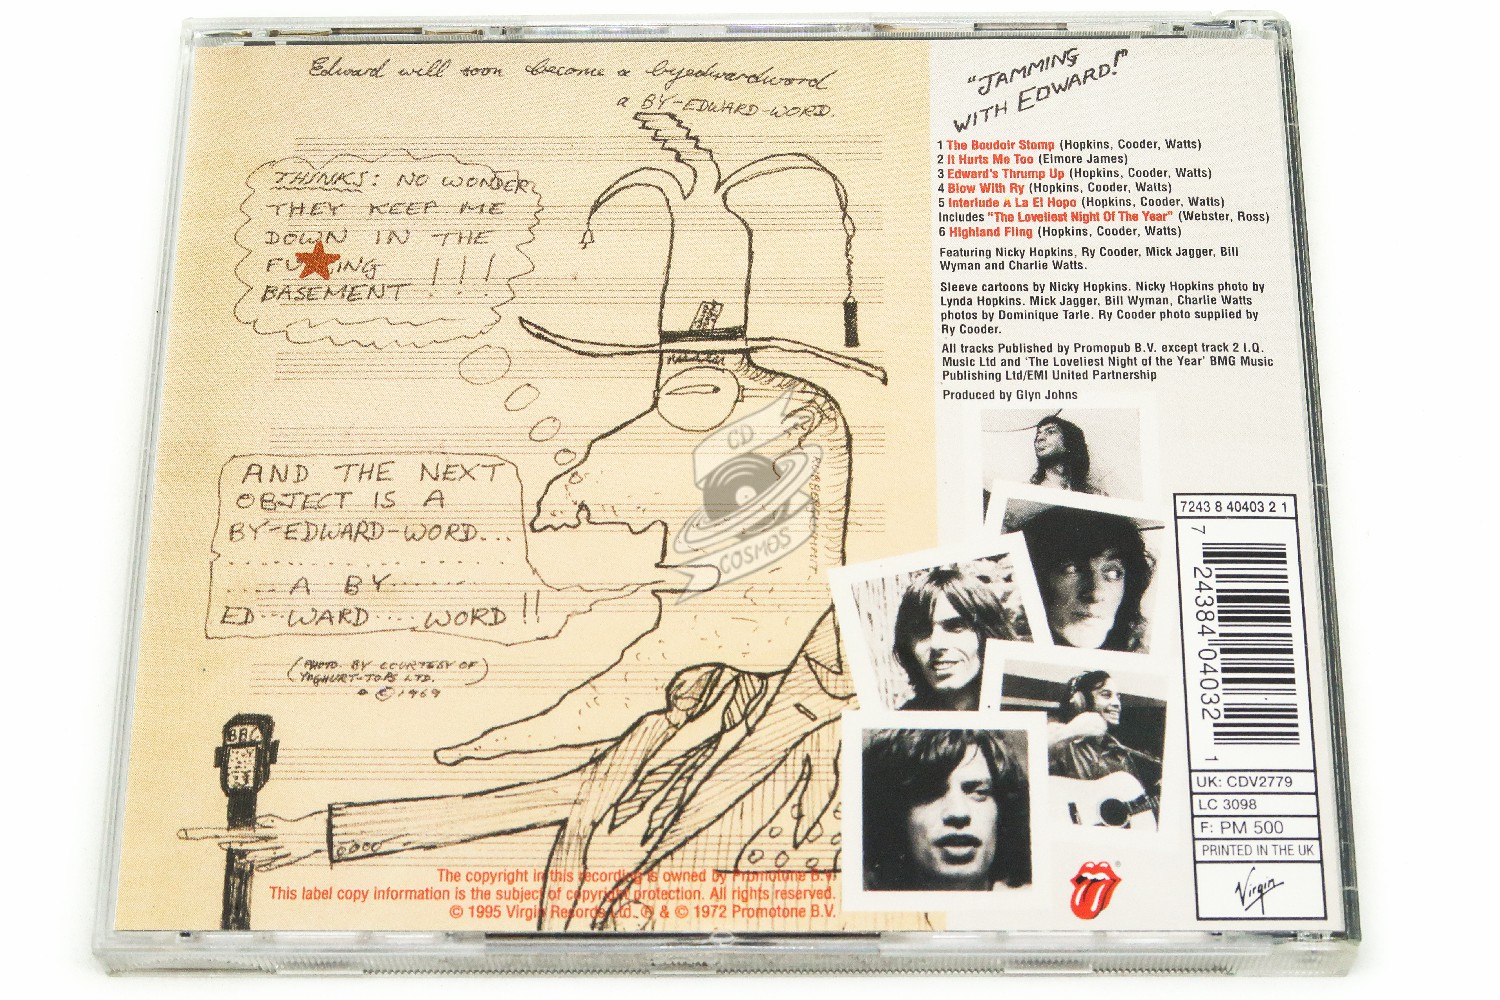 Edward will soon become a byedwardword
a BY-EDWARD-WORD.
THINKS: NO WONDER
THEY KEEP ME
DOWN IN THE
FU★ING
BASEMENT !!!
AND THE NEXT
OBJECT IS A
BY-EDWARD-WORD...
.... A BY......
ED...WARD....WORD!!
(PHOTO BY COURTESY OF
YOGHURT-TOPS LTD.)
© 1969
BBC
The copyright in this recording is owned by Promotone B.V.
This label copy information is the subject of copyright protection. All rights reserved.
© 1995 Virgin Records Ltd. ℗ & © 1972 Promotone B.V.
"JAMMING
WITH EDWARD!"
1 The Boudoir Stomp (Hopkins, Cooder, Watts)
2 It Hurts Me Too (Elmore James)
3 Edward's Thrump Up (Hopkins, Cooder, Watts)
4 Blow With Ry (Hopkins, Cooder, Watts)
5 Interlude A La El Hopo (Hopkins, Cooder, Watts)
Includes "The Loveliest Night Of The Year" (Webster, Ross)
6 Highland Fling (Hopkins, Cooder, Watts)
Featuring Nicky Hopkins, Ry Cooder, Mick Jagger, Bill
Wyman and Charlie Watts.
Sleeve cartoons by Nicky Hopkins. Nicky Hopkins photo by
Lynda Hopkins. Mick Jagger, Bill Wyman, Charlie Watts
photos by Dominique Tarle. Ry Cooder photo supplied by
Ry Cooder.
All tracks Published by Promopub B.V. except track 2 I.Q.
Music Ltd and 'The Loveliest Night of the Year' BMG Music
Publishing Ltd/EMI United Partnership
Produced by Glyn Johns
7243 8 40403 2 1
7 24384 04032 1
UK: CDV2779
LC 3098
F: PM 500
PRINTED IN THE UK
Virgin
CD
COSMOS